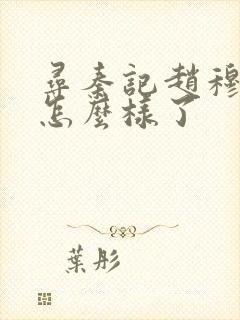 尋秦記趙穆
怎麼樣了
葉彤